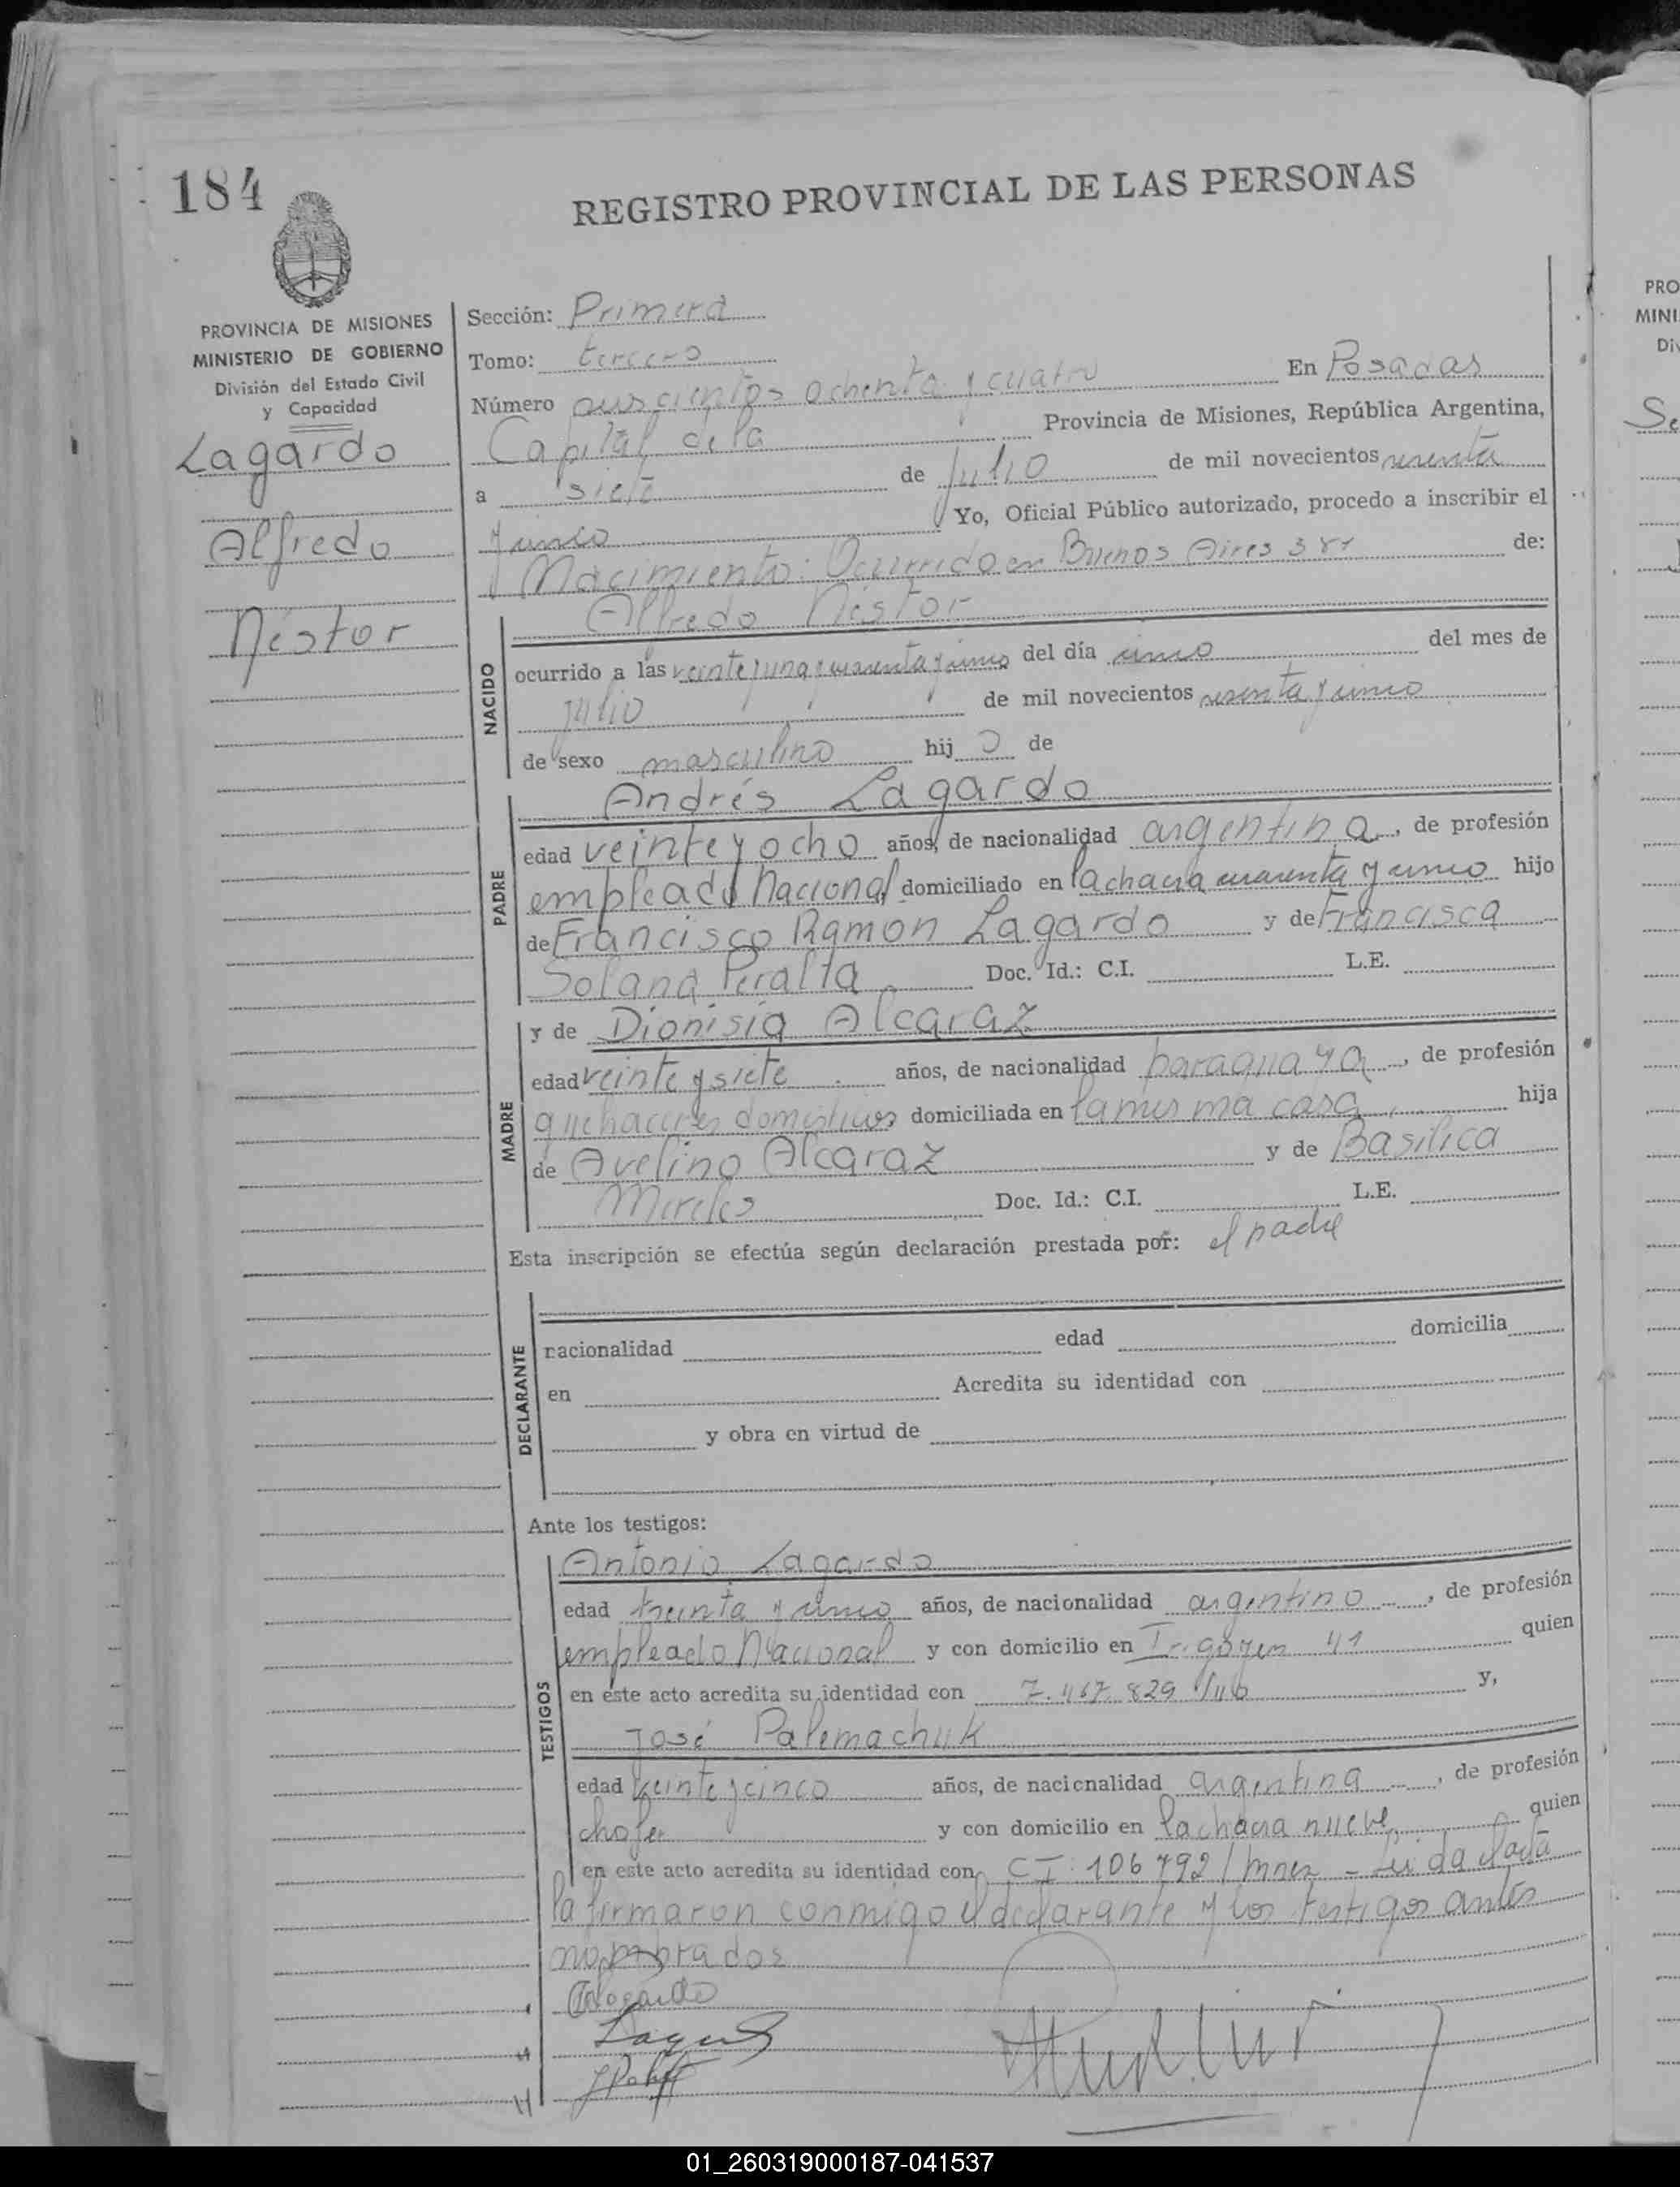 184
REGISTRO PROVINCIAL DE LAS PERSONAS
PROVINCIA DE MISIONES
MINISTERIO DE GOBIERNO
División del Estado Civil
y Capacidad
Lagardo
Alfredo
Néstor
Sección: Primera
Tomo: tercero
Número ouscientos ochenta y cuatro En Posadas
Capital de la Provincia de Misiones, República Argentina,
a siete de julio de mil novecientos sesenta
y cinco Yo, Oficial Público autorizado, procedo a inscribir el
Nacimiento: Ocurrido en Buenos Aires 381 de:
Alfredo Néstor
NACIDO
ocurrido a las veinte y una y cuarenta y cinco del día cinco del mes de
julio de mil novecientos sesenta y cinco
de sexo masculino hijo de
Andrés Lagardo
PADRE
edad veinte y ocho años, de nacionalidad argentina, de profesión
empleado Nacional domiciliado en la chacra cuarenta y cinco hijo
de Francisco Ramón Lagardo y de Francisca
Solana Peralta Doc. Id.: C.I. L.E.
MADRE
y de Dionisia Alcaraz
edad veinte y siete años, de nacionalidad paraguaya, de profesión
quehaceres domésticos domiciliada en la misma casa hija
de Avelino Alcaraz y de Basilica
Mireles Doc. Id.: C.I. L.E.
Esta inscripción se efectúa según declaración prestada por: el padre
DECLARANTE
nacionalidad edad domicilia
en Acredita su identidad con
y obra en virtud de
Ante los testigos:
TESTIGOS
Antonio Lagardo
edad treinta y cinco años, de nacionalidad argentino, de profesión
empleado Nacional y con domicilio en Irigoyen 41 quien
en este acto acredita su identidad con 7.467.829 y,
José Palemachuk
edad veinte y cinco años, de nacionalidad argentina, de profesión
chofer y con domicilio en la chacra nueve quien
en este acto acredita su identidad con C I: 106792/mnes - Leida el acta
la firmaron conmigo el declarante y los testigos antes
nombrados
PRO
MINI
Div
Se
01_260319000187-041537